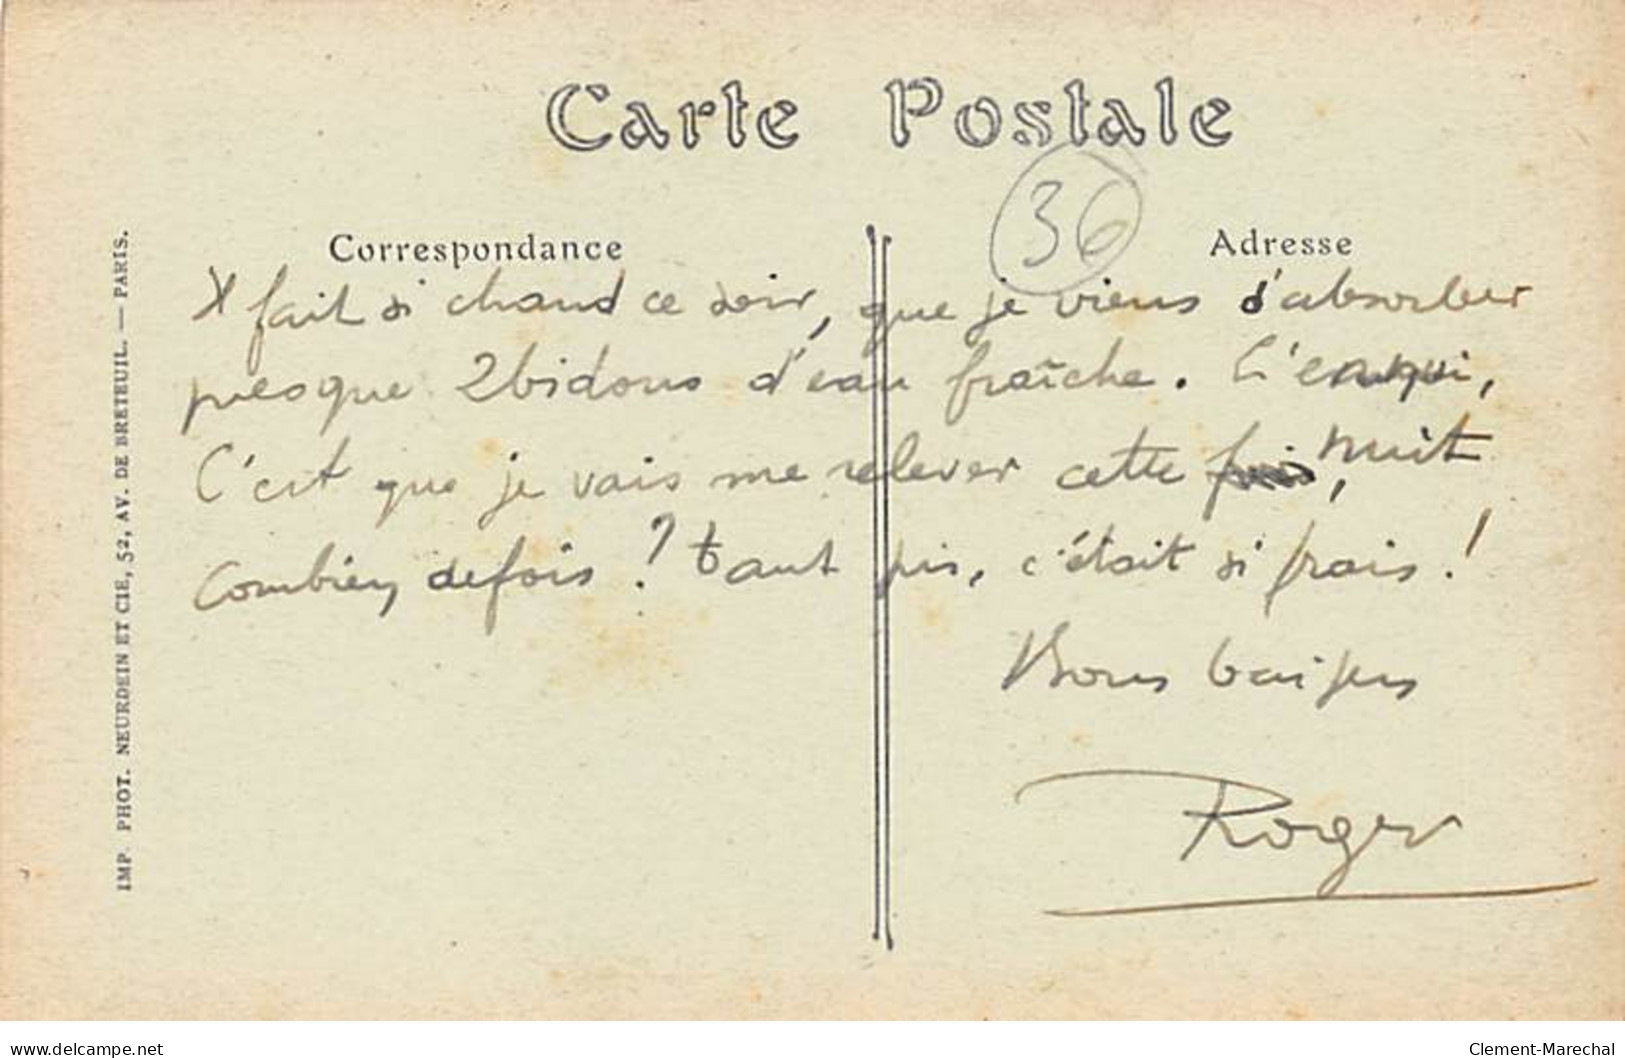 Carte Postale
36
Correspondance
Adresse
Il fait si chaud ce soir, que je viens d'absorber
presque 2 bidons d'eau fraîche. L'ennui,
C'est que je vais me relever cette fois, nuit
combien de fois ? tant pis, c'était si frais !
Bons baisers
Roger
IMP. PHOT. NEURDEIN ET CIE, 52, AV. DE BRETEUIL. — PARIS.
www.delcampe.net
Clement-Marechal